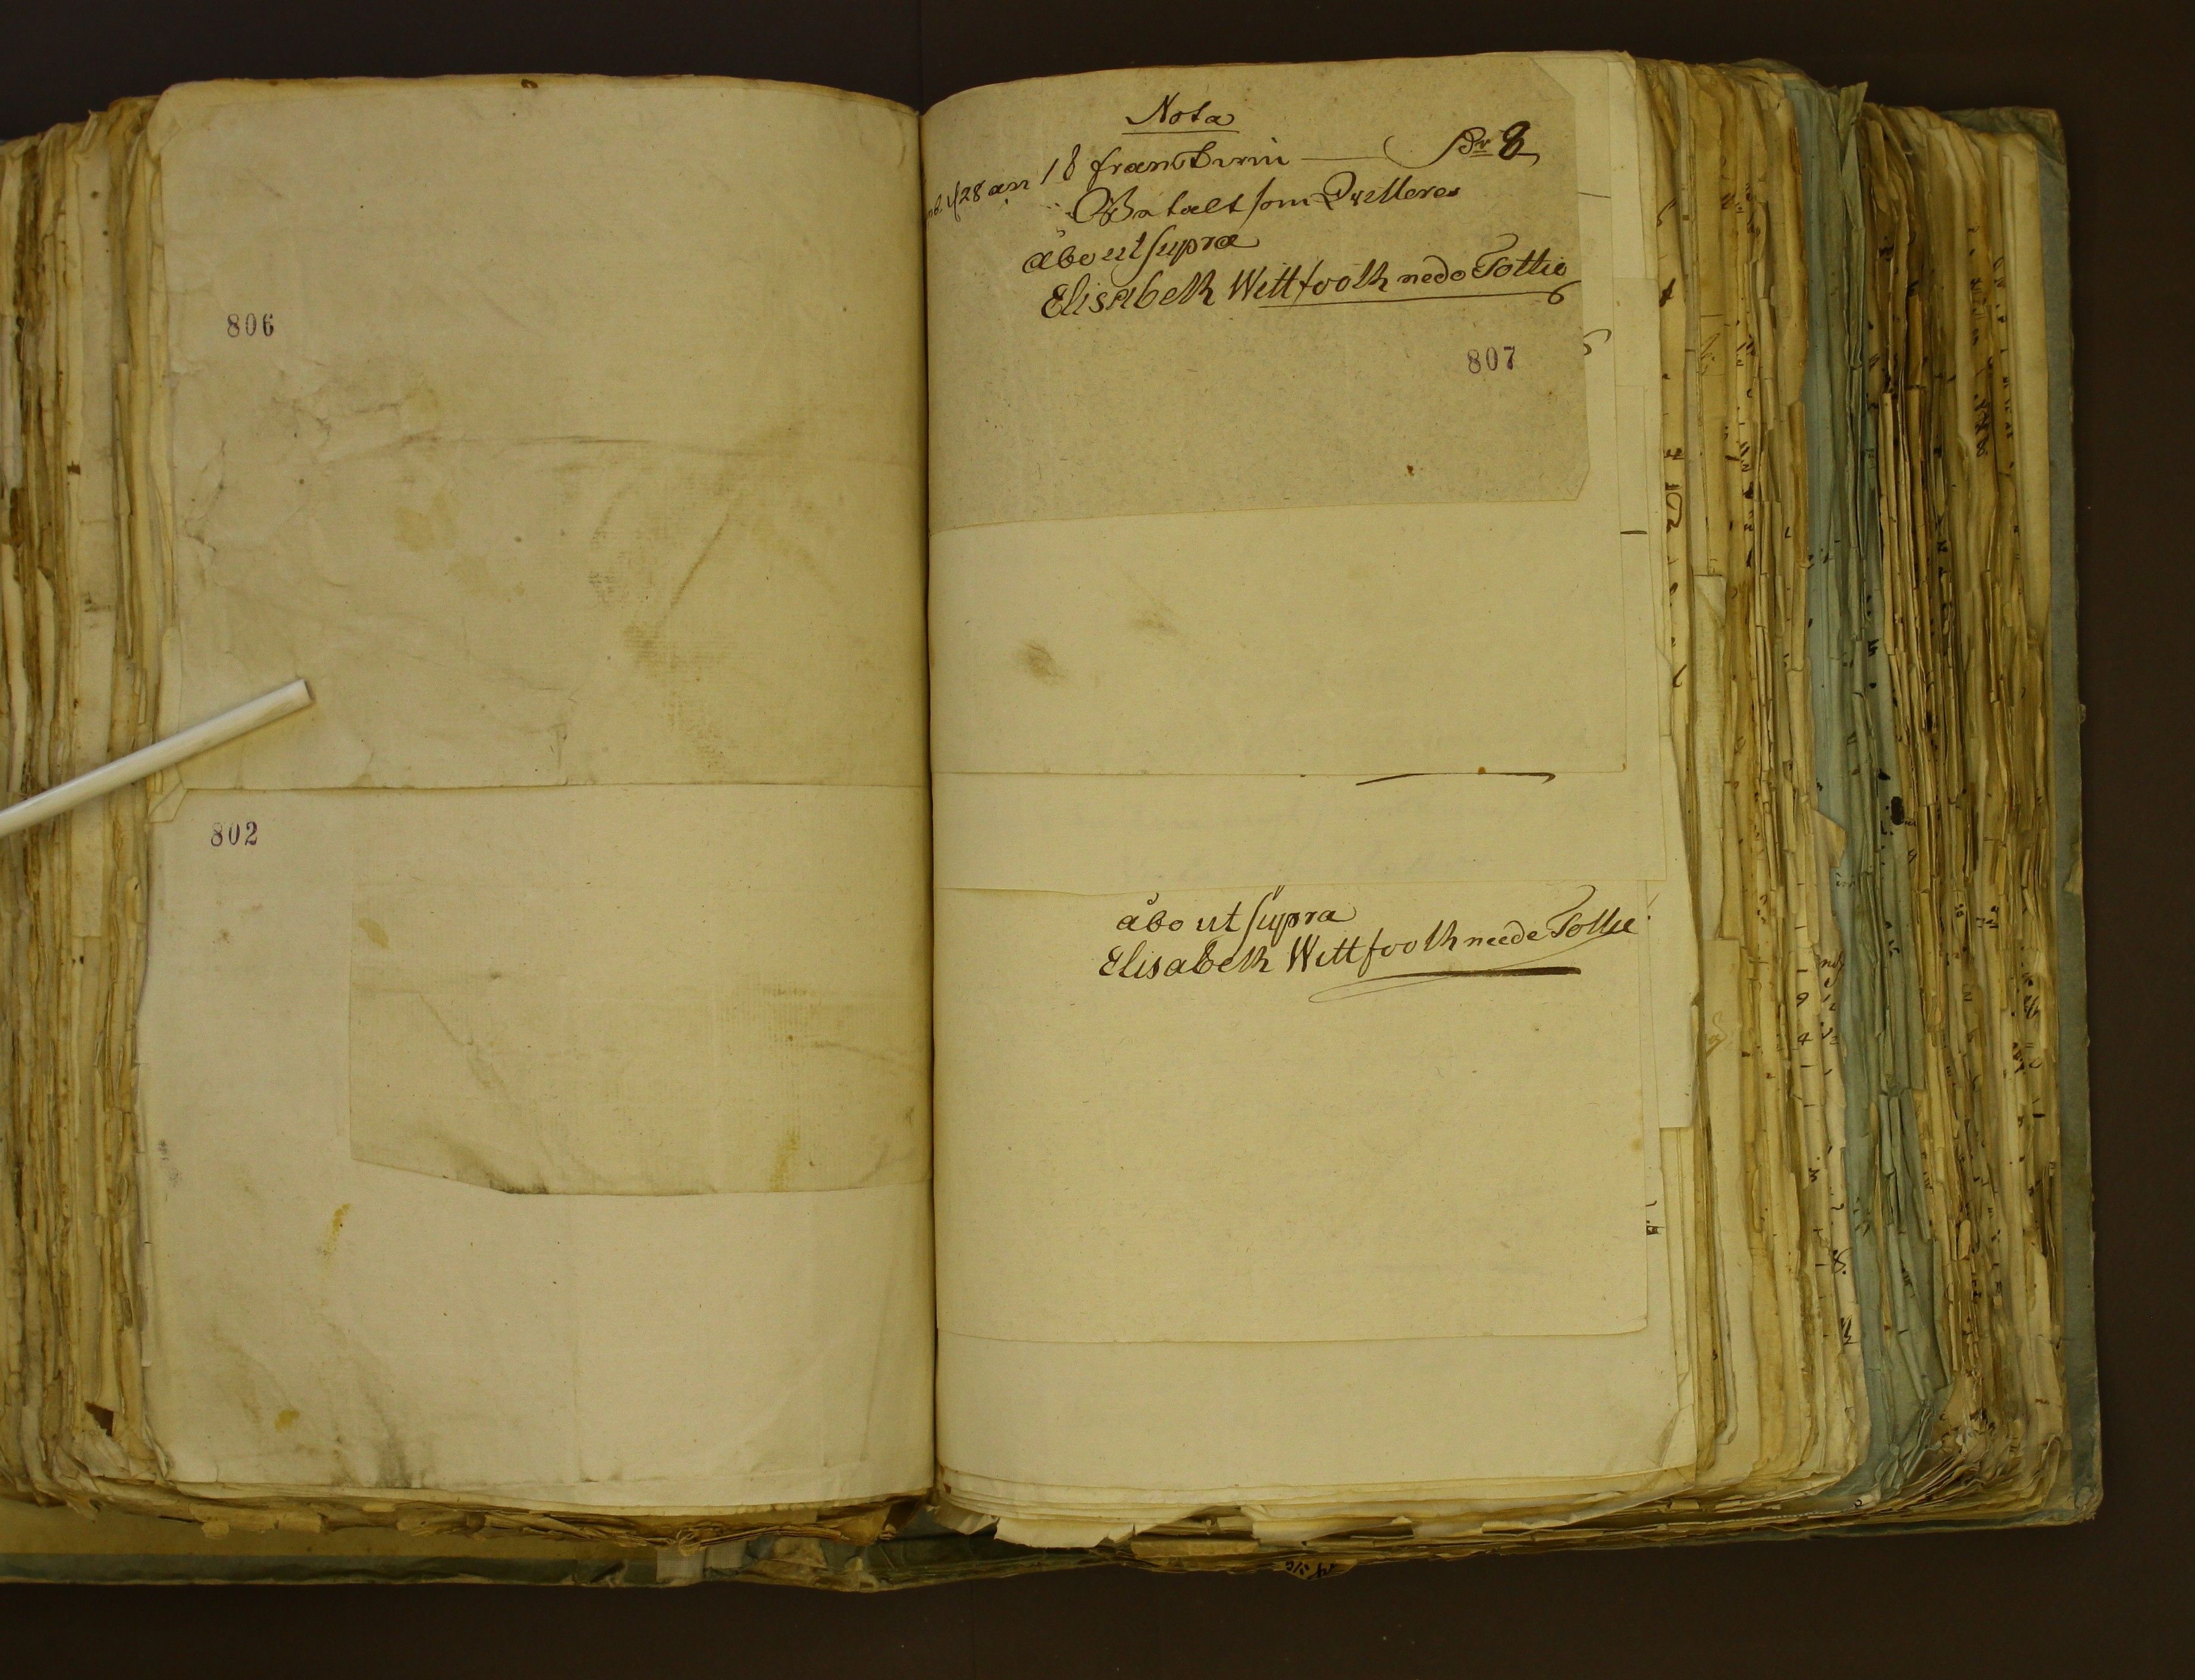 806
802
Nota
28 an 18 frantVinn — Sr 8
Betalt som Qvitteras
åbo ut supra
Elisabeth Wittfooth nede Tottie
807
åbo ut supra
Elisabeth Wittfooth neede Tottie